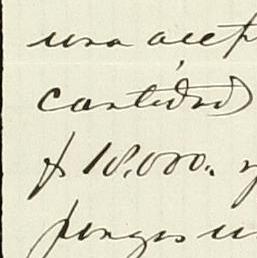 una acep
cantidad
$ 10.000. y
pongas u